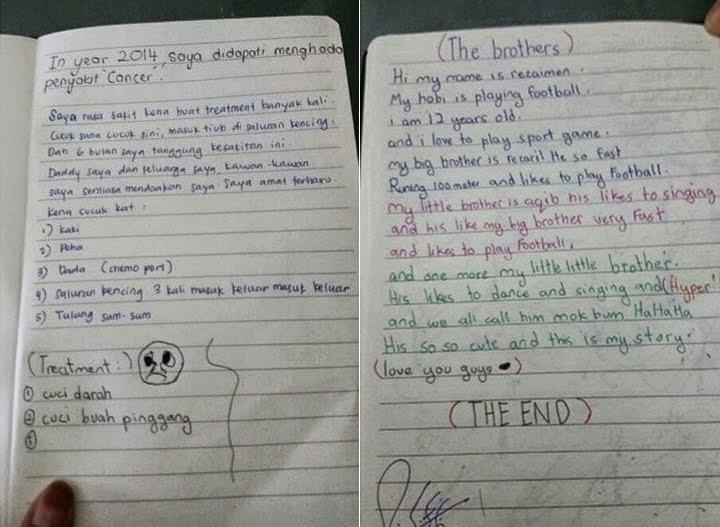 In year 2014, saya didapati menghada
penyakit Cancer.
Saya rasa sakit kena buat treatment banyak kali.
Cucuk sana cucuk sini, masuk tiub di saluran kencing.
Dan 6 bulan saya tanggung kesakitan ini.
Daddy saya dan keluarga saya, kawan-kawan
saya sentiasa mendoakan saya. Saya amat terharu.
Kena cucuk kat :
1) kaki
2) Peha
3) Dada (chemo port)
4) saluran kencing 3 kali masuk keluar masuk keluar
5) Tulang sum-sum
(Treatment:)
① cuci darah
② cuci buah pinggang
③
(The brothers)
Hi my name is rezaimen.
My hobi is playing football.
i am 12 years old.
and i love to play sport game.
my big brother is rezaril He so fast
Runing 100 meter and likes to play Football.
my little brother is aqib his likes to singing
and his like my big brother very Fast
and likes to play Football,
and one more my little little brother.
His likes to dance and singing and (Hyper!
and we all call him mok bum HaHaHa
His so so cute and this is my story.
(love you guys)
(THE END)